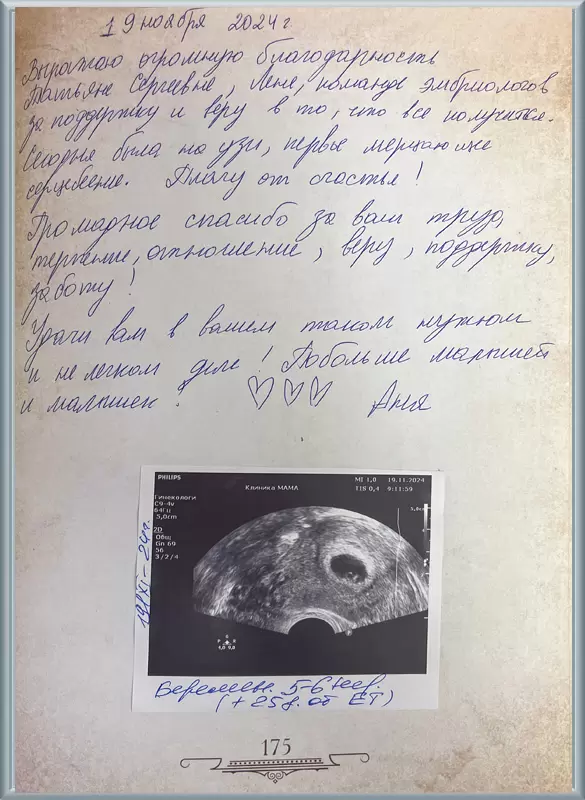 19 ноября 2024 г.
Выражаю огромную благодарность
Татьяне Сергеевне, Лене, команде эмбриологов
за поддержку и веру в то, что все получится.
Сегодня была на узи, первое мерцающее
сердцебиение. Плачу от счастья!
Громадное спасибо за ваш труд,
терпение, отношение, веру, поддержку,
заботу!
Удачи вам в вашем таком нужном
и не легком деле! Побольше малышей
и малышек! Аня
PHILIPS
MI 1,0 19.11.2024
Клиника МАМА
TIS 0,4 9:11:59
Гинекологи
C9-4v
64Гц
5,0cm
2D
Общ
Gn 69
56
3/2/4
5,0см
P R
4,0 9,0
19/XI - 24г.
Беременн. 5-6 нед.
(+25д. от ЕТ)
175